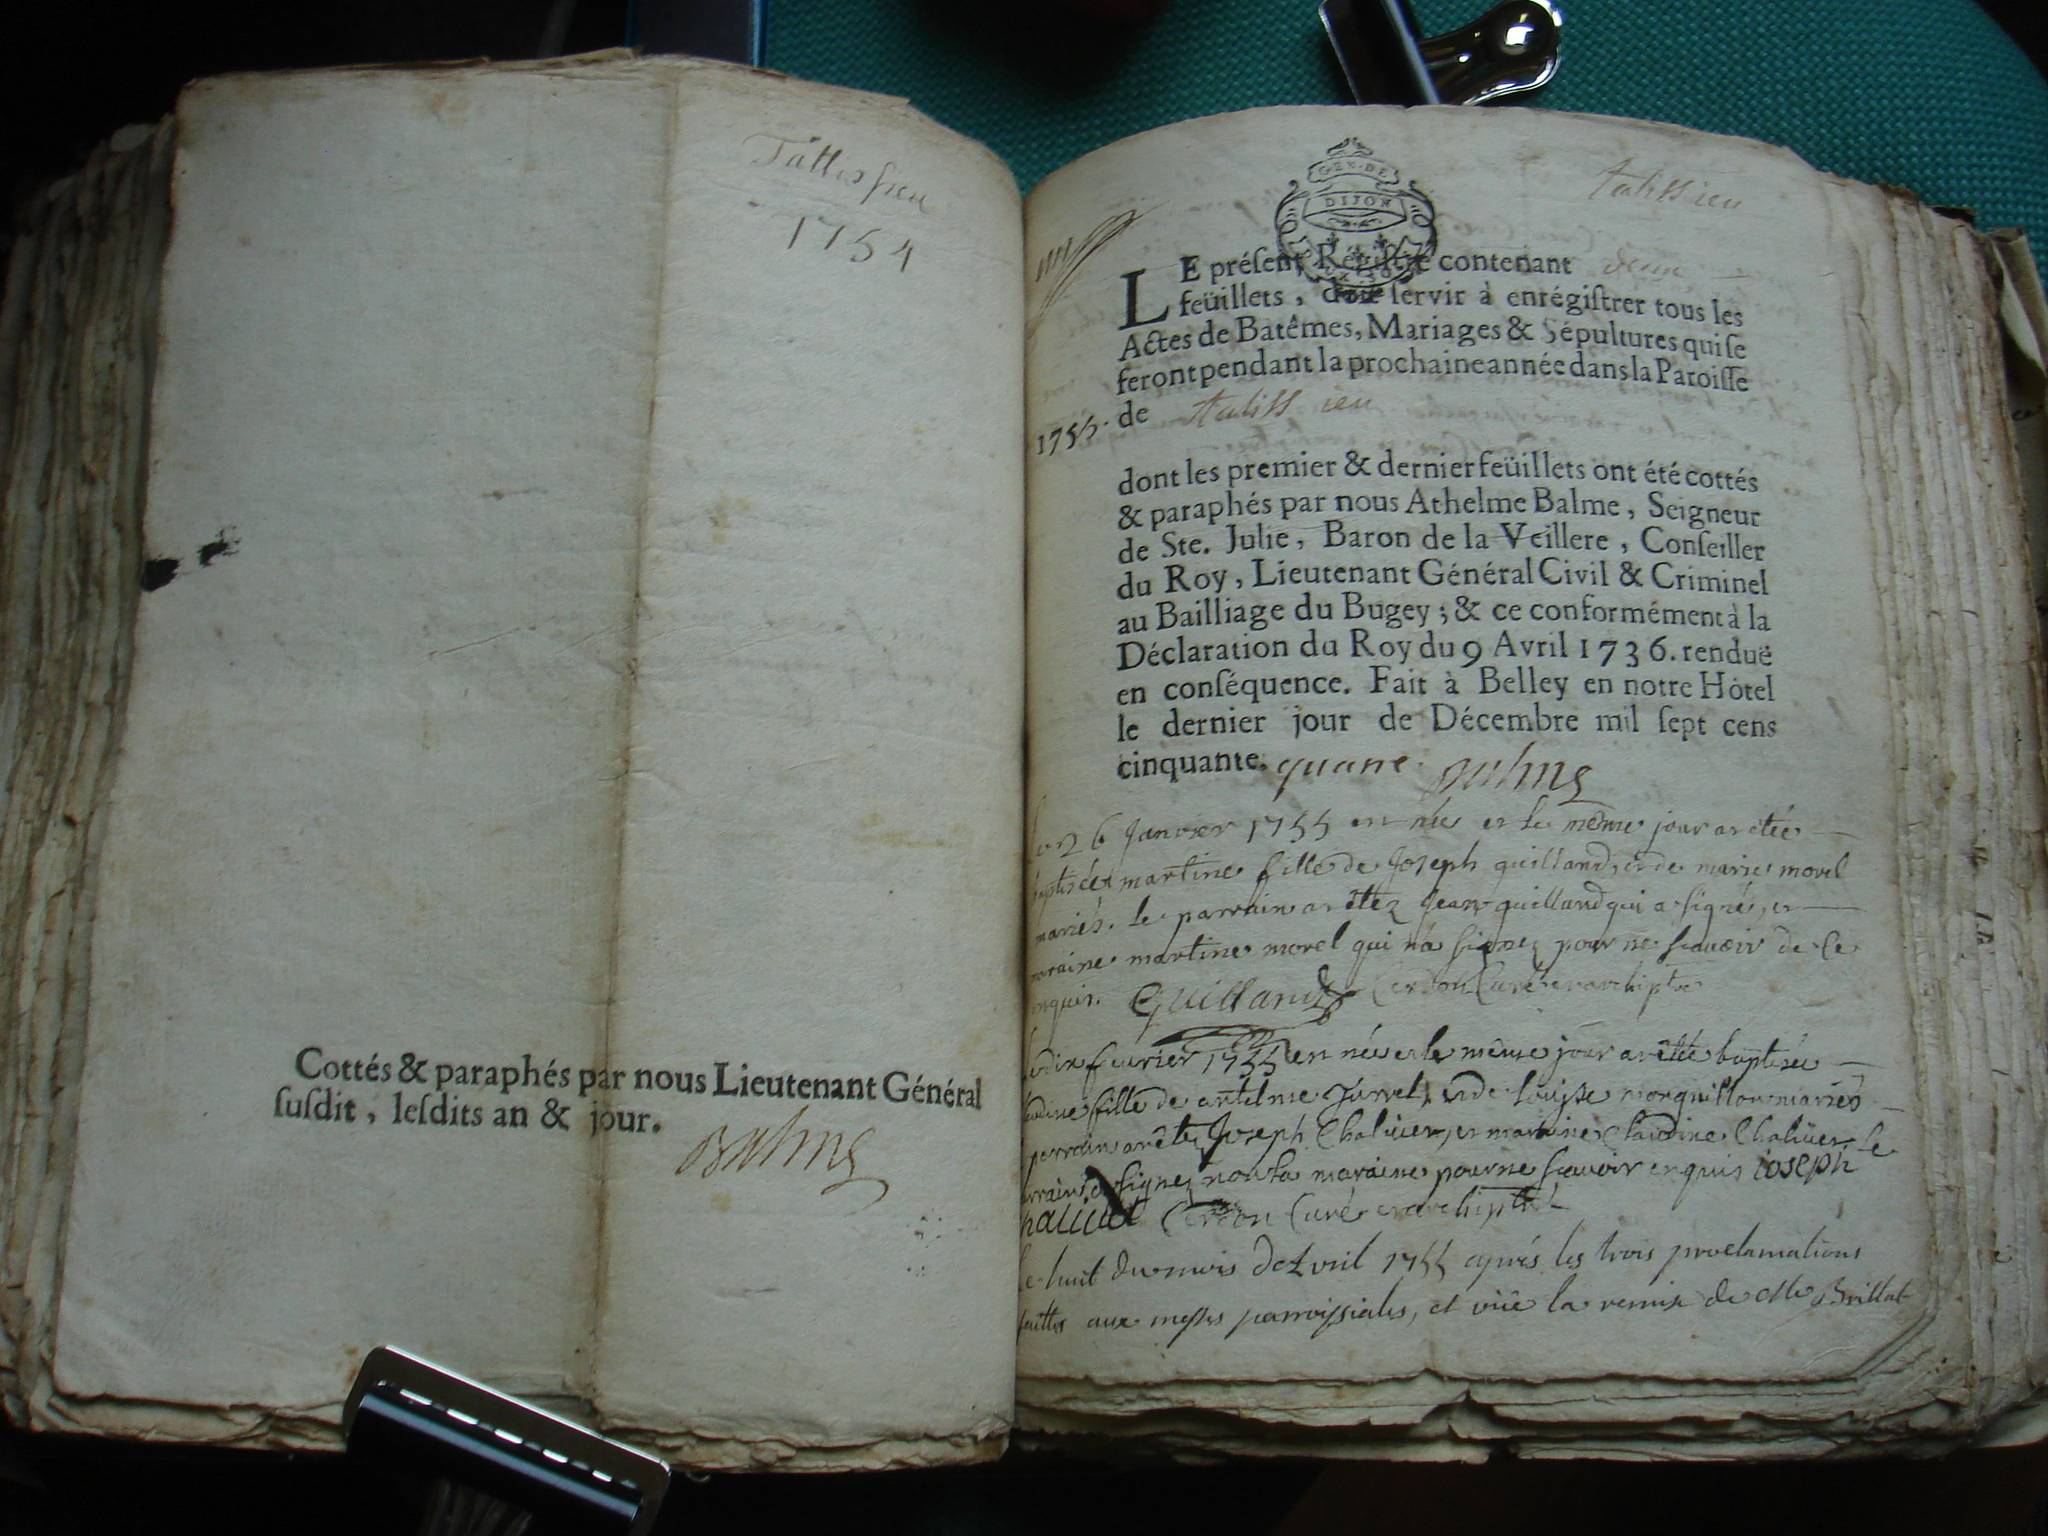 Tallissieu
1754
Cottés & paraphés par nous Lieutenant Général
susdit, lesdits an & jour.
Balme
GEN. DE
DIJON
talissieu
LE présent Régistre contenant deux
feüillets, doit servir à enrégistrer tous les
Actes de Batêmes, Mariages & Sépultures qui se
feront pendant la prochaine année dans la Paroisse
de talissieu
1755.
dont les premier & dernier feüillets ont été cottés
& paraphés par nous Athelme Balme, Seigneur
de Ste. Julie, Baron de la Veillere, Conseiller
du Roy, Lieutenant Général Civil & Criminel
au Bailliage du Bugey; & ce conformément à la
Déclaration du Roy du 9 Avril 1736. renduë
en conséquence. Fait à Belley en notre Hôtel
le dernier jour de Décembre mil sept cens
cinquante. quatre. Balme
6 Janvier 1755 est née et le même jour a etée
martine fille de Joseph guilland, et de marie morel
mariés. le parrain a étez Jean guilland qui a signé, et
maraine martine morel qui n'a signez pour ne scavoir de ce
enquis. Guilland Cerdon Curé et archiptre
le dix fevrier 1755 est née et le même jour a êtée baptisée
fille de antelme Jurret, et de Louise morguillon mariés
parrain a êtez Joseph Chalivet, et maraine Claudine Chalivet le
parrain a signez non la maraine pour ne scavoir enquis ioseph
chalivet Cerdon Curé et archiptre
le huit du mois d'Avril 1755 après les trois proclamations
faittes aux messes parroissiales, et vüe la remise de Mre Brillat